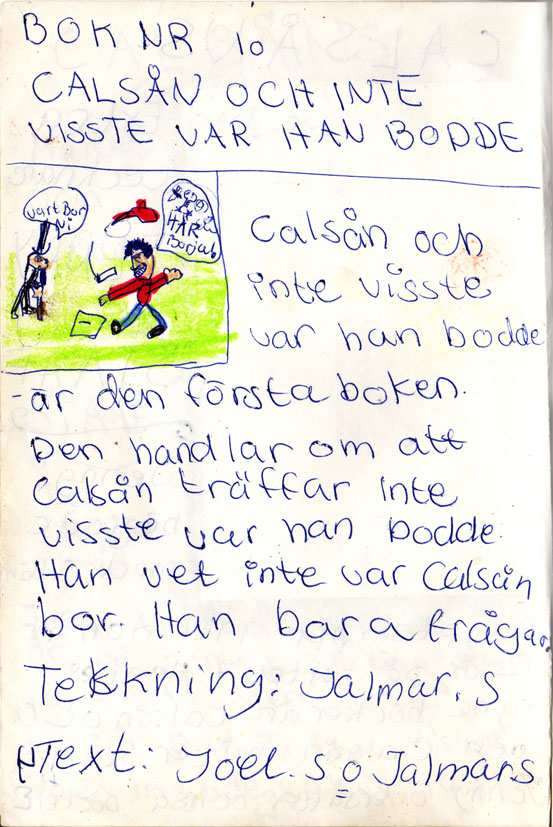 BOK NR 10
CALSÅN OCH INTE
VISSTE VAR HAN BODDE
vart Bor
Ni
HÄR
Börja
Calsån och
inte visste
var han bodde
-är den första boken.
Den handlar om att
Calsån träffar inte
visste var han bodde.
Han vet inte var Calsån
bor. Han bara frågar.
Teckning: Jalmar. S
Text: Joel. S o Jalmar.S